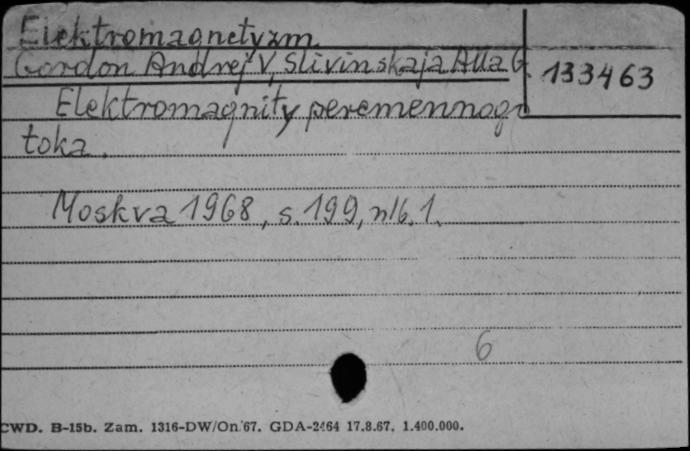 Elektromagnetyzm.
Gordon Andrej V, Slivinskaja Alla G. 133463
Elektromagnity peremennogo
toka.
Moskva 1968, s. 199, nlb. 1.
6
CWD. B-15b. Zam. 1316-DW/On/67. GDA-2464 17.8.67. 1.400.000.